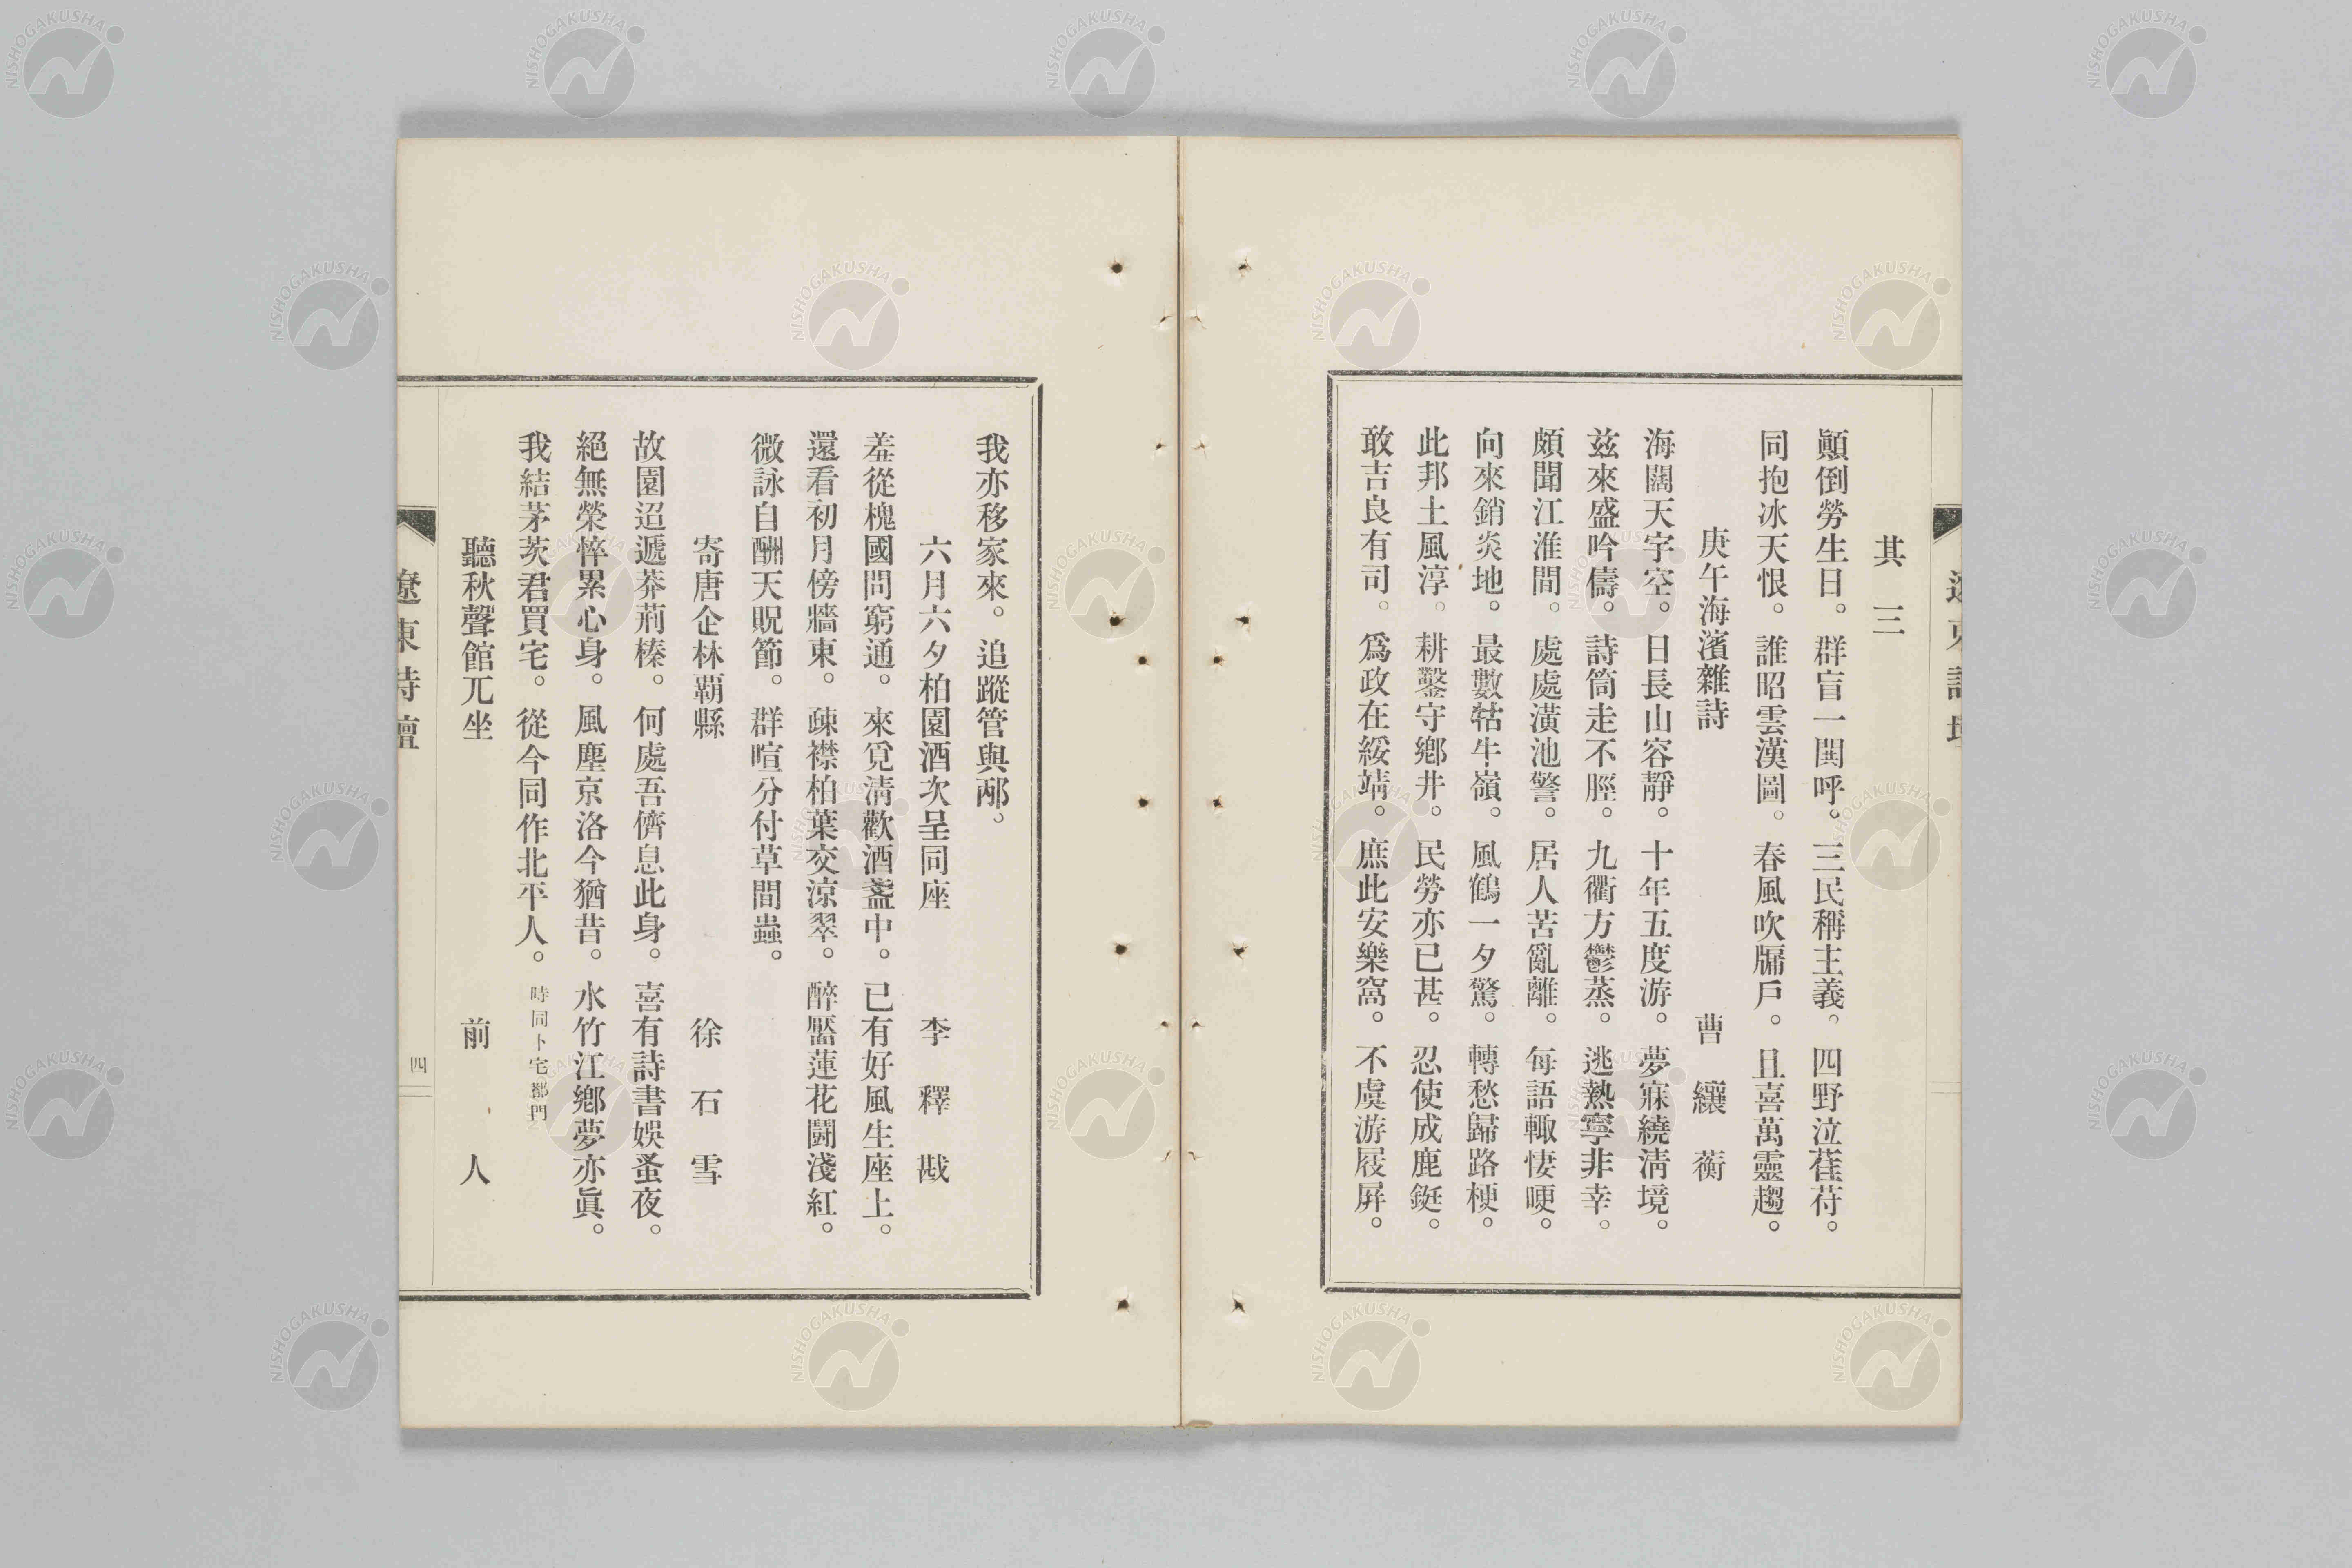 其三
顚倒勞生日。群盲一閧呼。三民稱主義。四野泣萑苻。
同抱冰天恨。誰昭雲漢圖。春風吹牖戶。且喜萬靈趨。
庚午海濱雜詩 曹纕蘅
海闊天宇空。日長山容靜。十年五度游。夢寐繞淸境。
茲來盛吟儔。詩筒走不脛。九衢方鬱蒸。逃熱寧非幸。
頗聞江淮間。處處潢池警。居人苦亂離。每語輒悽哽。
向來銷炎地。最數牯牛嶺。風鶴一夕驚。轉愁歸路梗。
此邦土風淳。耕鑿守鄕井。民勞亦已甚。忍使成鹿鋌。
敢吿良有司。爲政在綏靖。庶此安樂窩。不虞游屐屛。
我亦移家來。追蹤管與邴。
六月六夕柏園酒次呈同座 李釋戡
羞從槐國問窮通。來覓淸歡酒盞中。已有好風生座上。
還看初月傍牆東。疎襟柏葉交涼翠。醉靨蓮花鬪淺紅。
微詠自酬天貺節。群喧分付草間蟲。
寄唐企林覇縣 徐石雪
故園迢遞莽荊榛。何處吾儕息此身。喜有詩書娛蚤夜。
絕無榮悴累心身。風塵京洛今猶昔。水竹江鄕夢亦眞。
我結茅茨君買宅。從今同作北平人。時同卜宅鄴門
聽秋聲館兀坐 前人
遼東詩壇
四
NISHOGAKUSHA